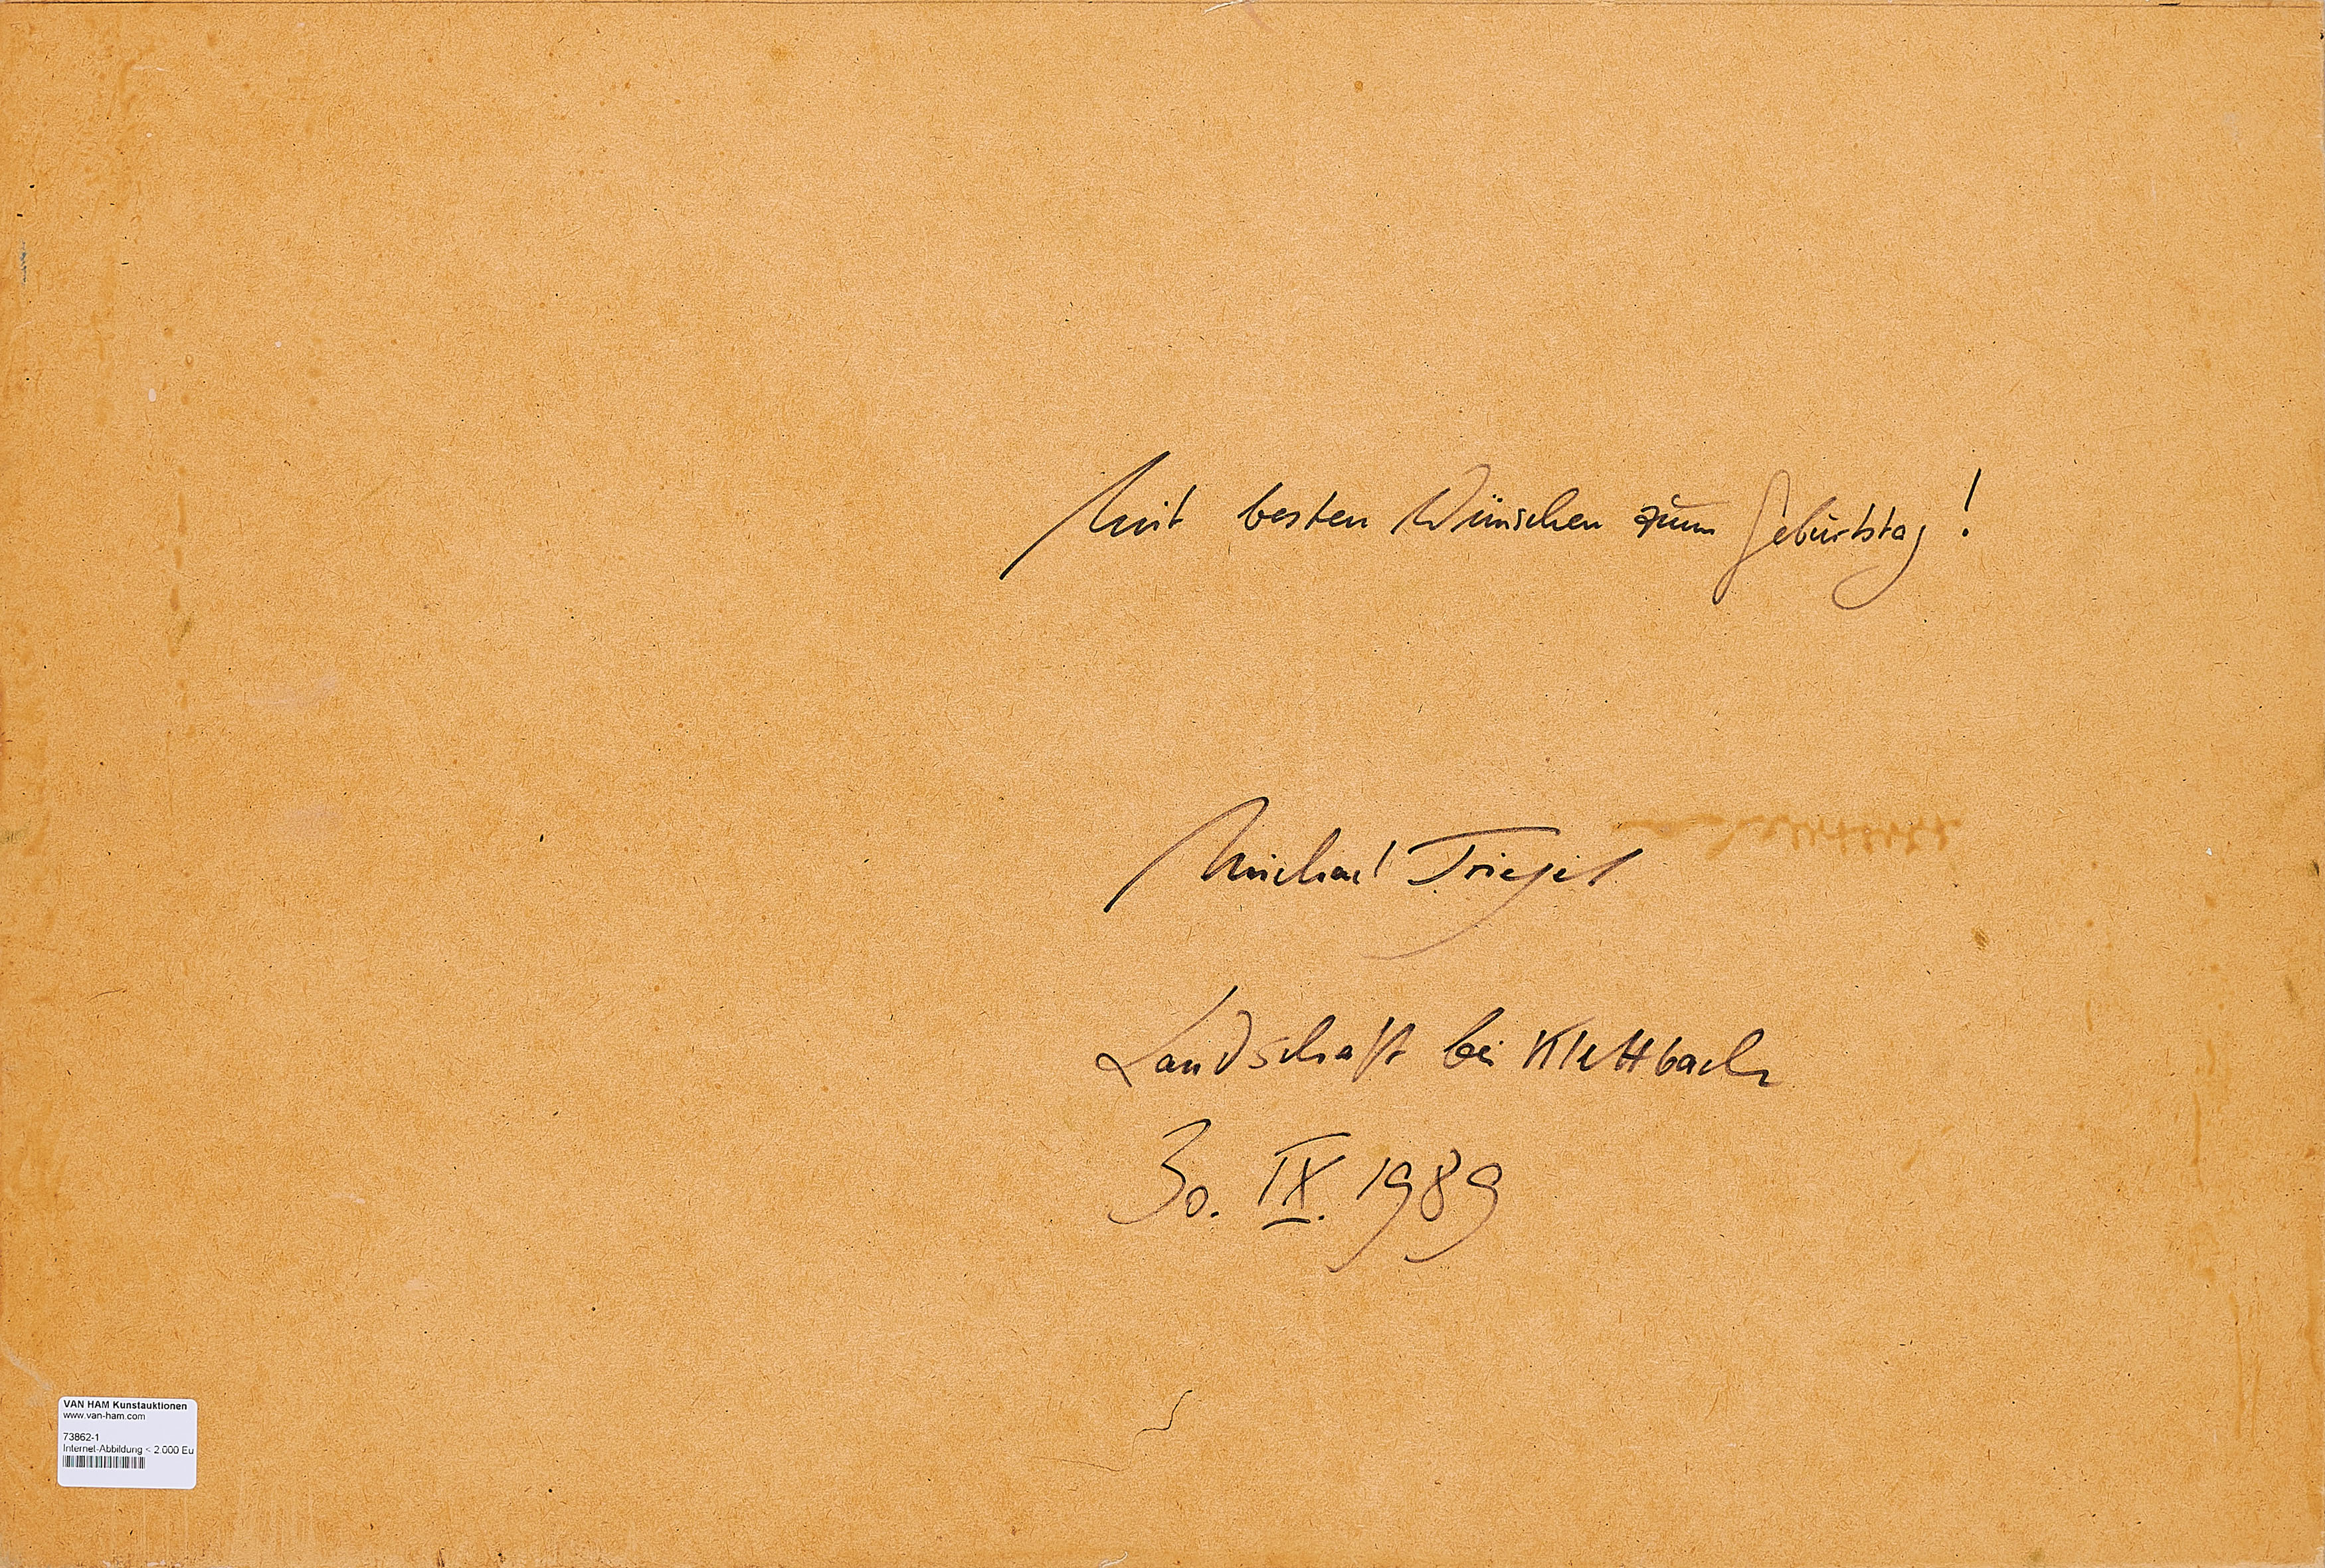 Mit besten Wünschen zum Geburtstag!
Michael Triegel
Landschaft bei Klettbach
30. IX. 1989
VAN HAM Kunstauktionen
www.van-ham.com
73862-1
Internet-Abbildung < 2.000 Eu